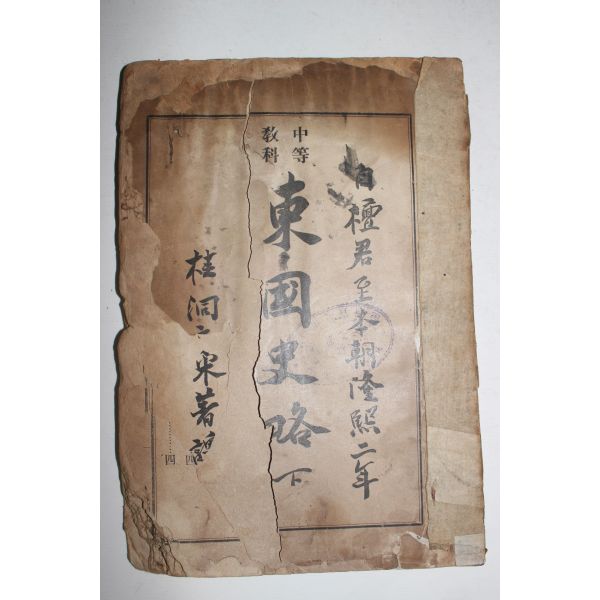 自檀君至本朝隆熙二年
中等
教科
東國史略下
桂洞
四
四